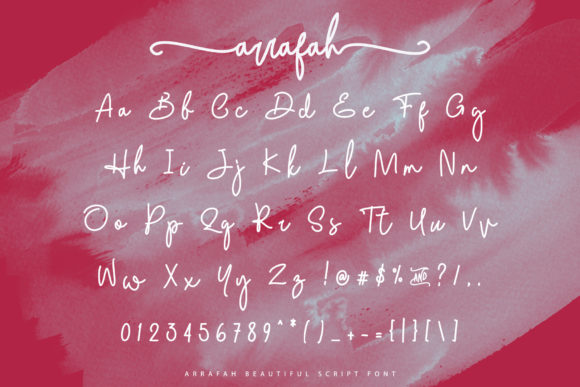 arrafah
Aa Bb Cc Dd Ee Ff Gg
Hh Ii Jj Kk Ll Mm Nn
Oo Pp Qq Rr Ss Tt Uu Vv
Ww Xx Yy Zz !@#$%&?/..
0123456789^*()_+-={|}[\]
ARRAFAH BEAUTIFUL SCRIPT FONT